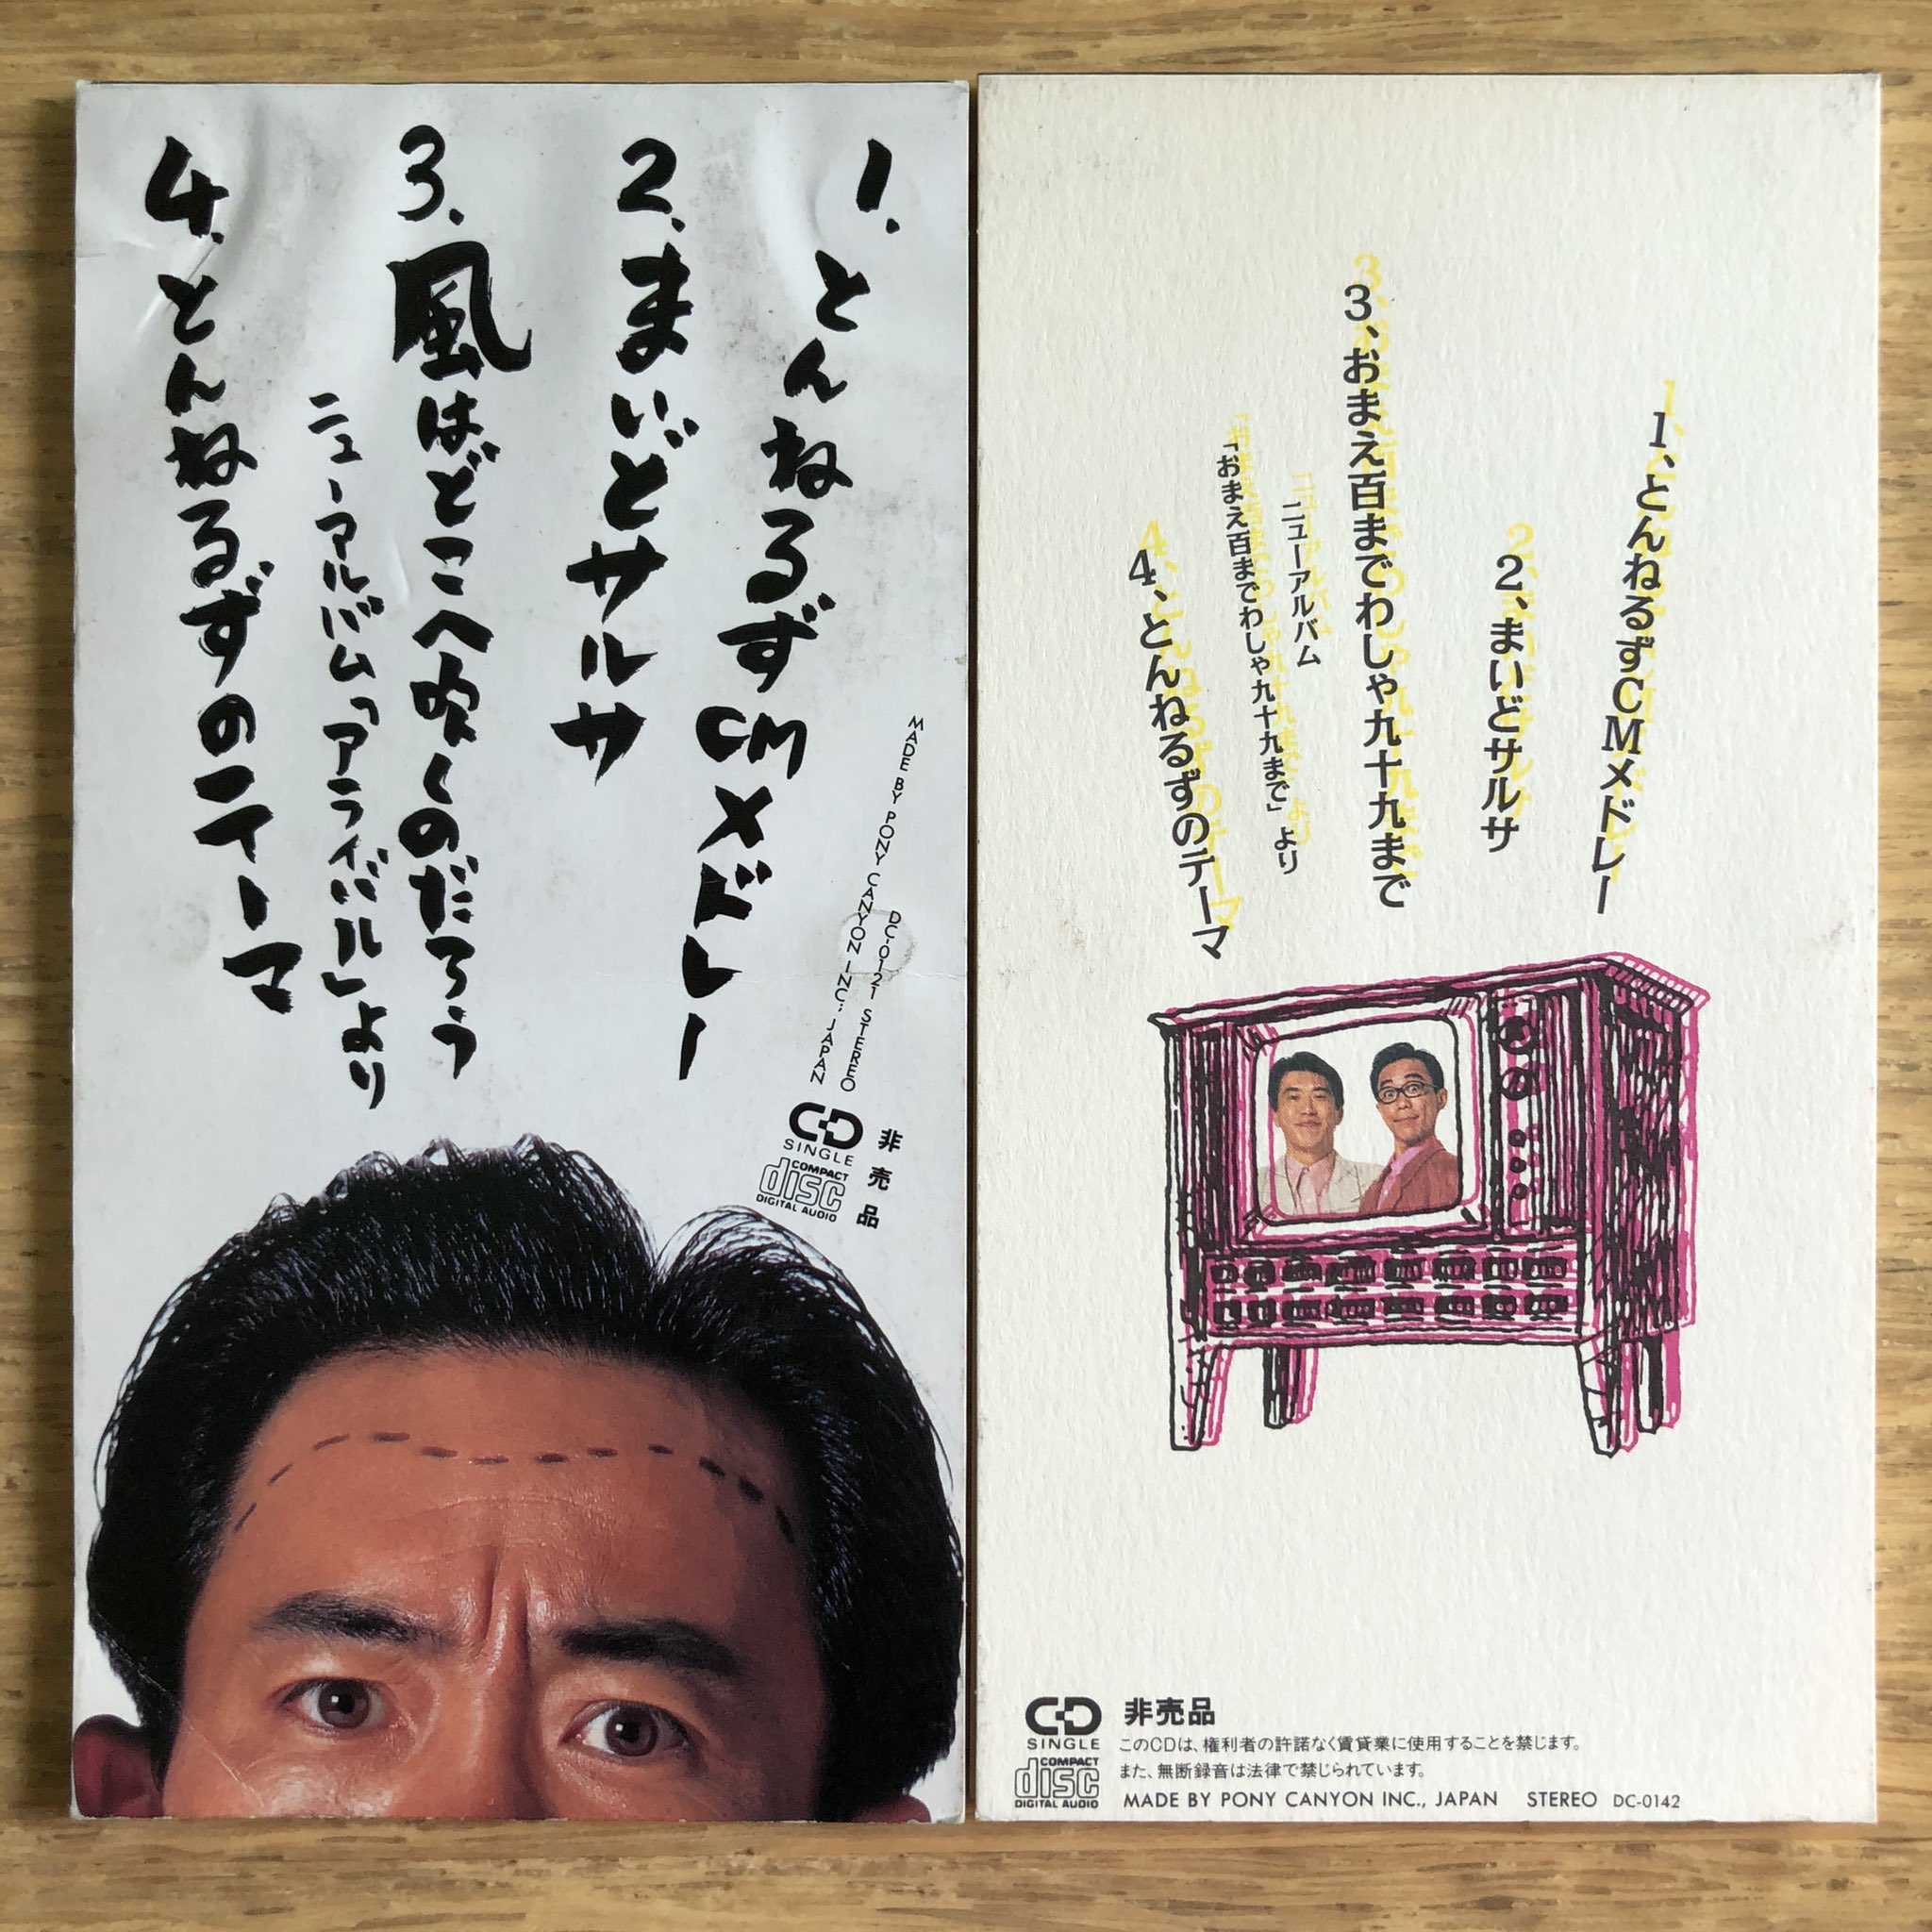 1.とんねるずCMメドレー
2.まいどサルサ
3.風はどこへ吹くのだろう
ニューアルバム「アライバル」より
4.とんねるずのテーマ
MADE BY PONY CANYON INC., JAPAN
DC-0121 STEREO
CD
SINGLE
COMPACT
disc
DIGITAL AUDIO
非売品
1、とんねるずCMメドレー
2、まいどサルサ
3、おまえ百までわしゃ九十九まで
ニューアルバム
「おまえ百までわしゃ九十九まで」より
4、とんねるずのテーマ
CD
SINGLE
COMPACT
disc
DIGITAL AUDIO
非売品
このCDは、権利者の許諾なく賃貸業に使用することを禁じます。
また、無断録音は法律で禁じられています。
MADE BY PONY CANYON INC., JAPAN STEREO DC-0142